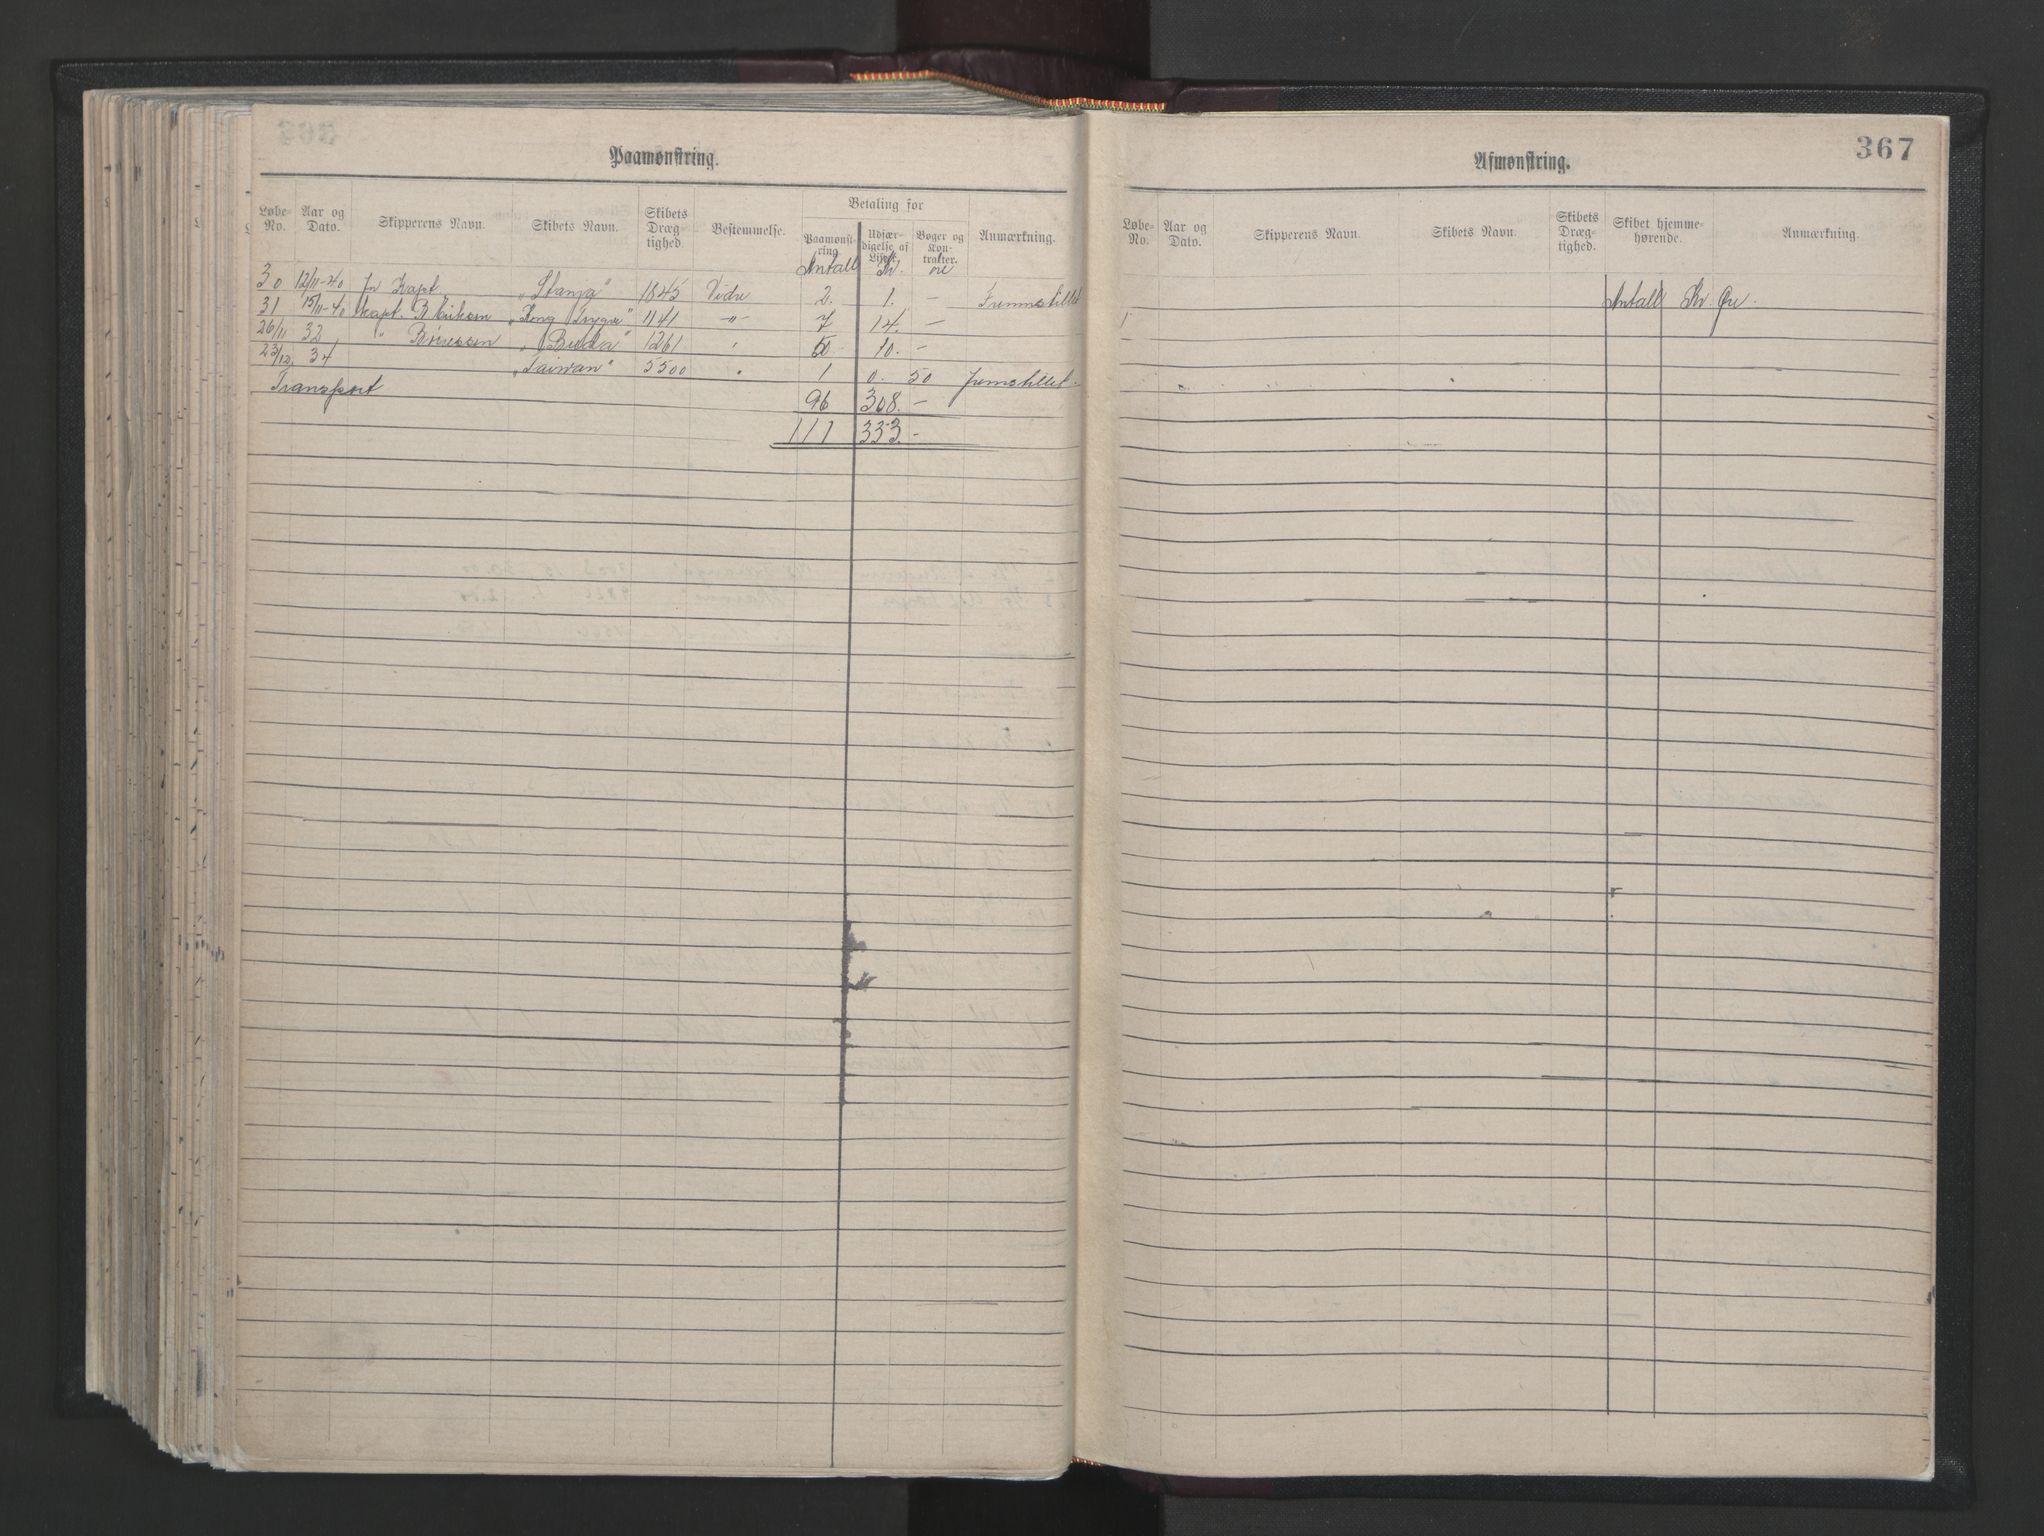 Paamønstring.
Løbe-No. Aar og Dato. Skipperens Navn. Skibets Navn. Skibets Dræg-tighed. Bestemmelse. Betaling for Paamønst-ring Udfær-digelse af Bøger og Kon-trakter. Anmærkning.
Antall Kr. øre
30 12/11-40 fr Kapt. "Stanja" 1845 Vidre 2. 1. -
31 15/11-40 Kapt. B. Eriksen "Kong Trygve" 1141 -"- 7 14. -
26/11 32 " "Buda" 1261 " 10. -
23/12. 34 "Taiwan" 5500 " 1 0. 50
Transport 96 308. -
111 333. -
Afmønstring.
367
Løbe-No. Aar og Dato. Skipperens Navn. Skibets Navn. Skibets Dræg-tighed. Skibet hjemme-hørende. Anmærkning.
Antall Kr. Øre.